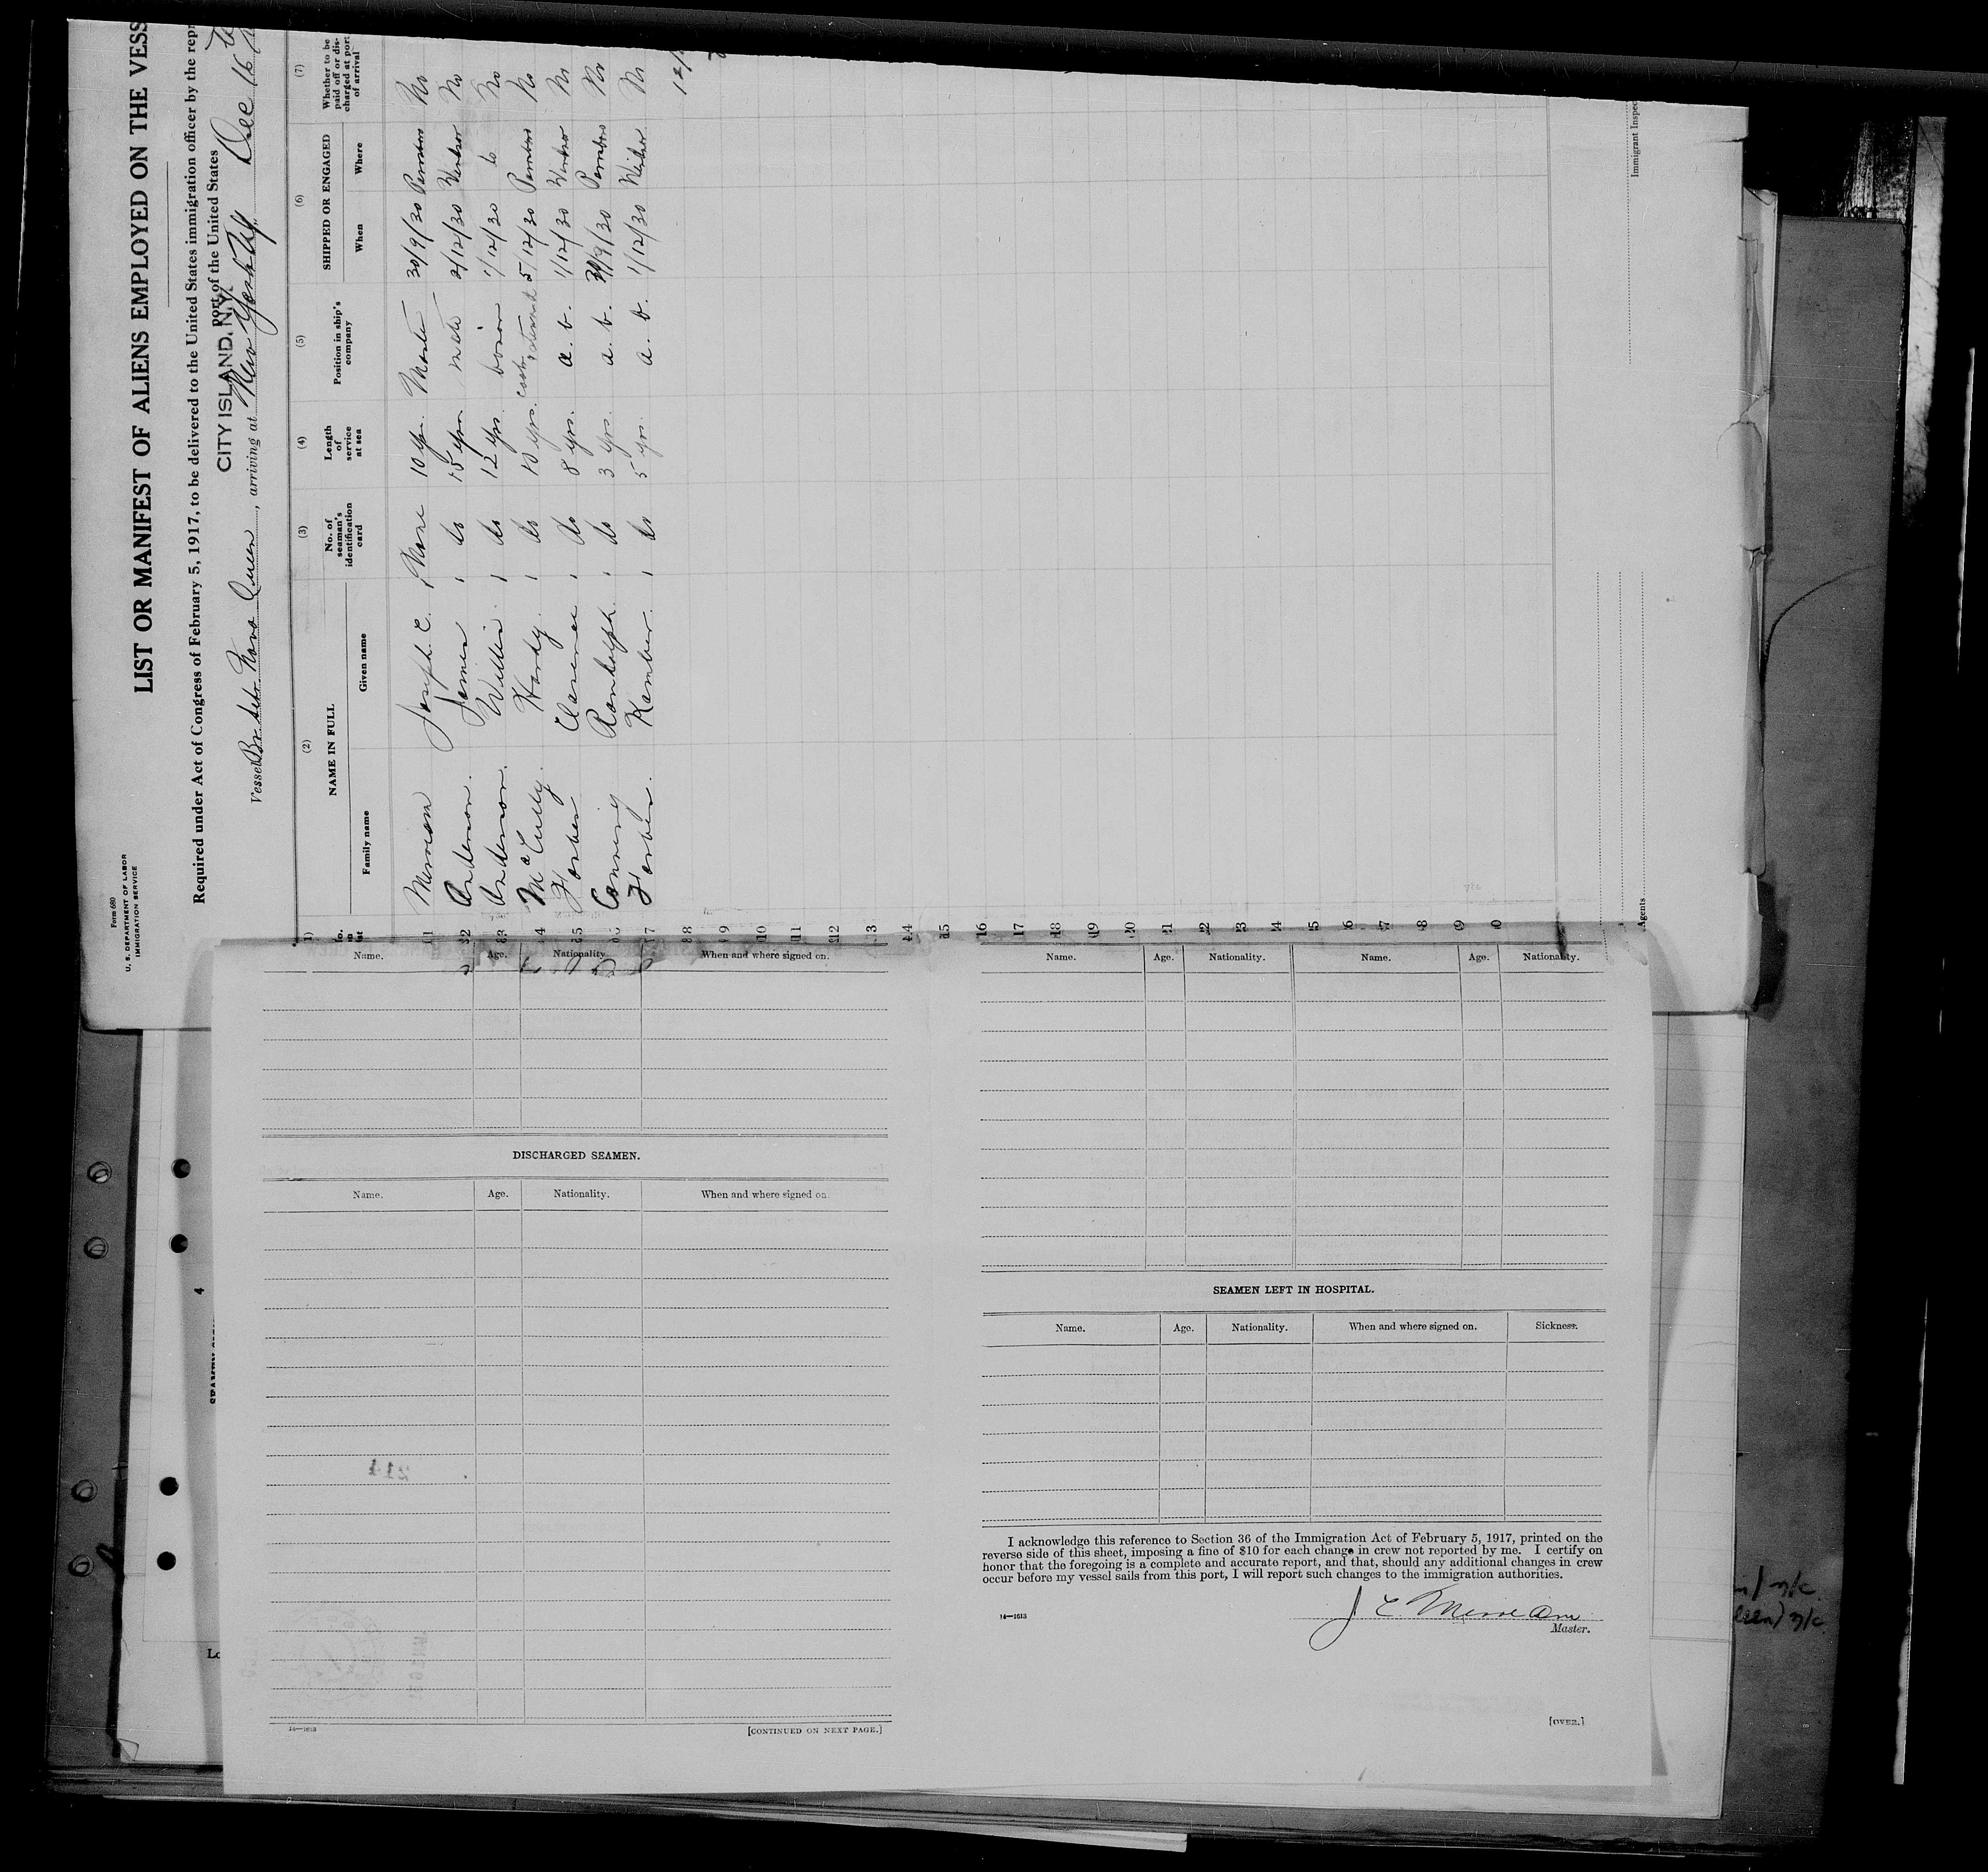 Form 680
U. S. DEPARTMENT OF LABOR
IMMIGRATION SERVICE
LIST OR MANIFEST OF ALIENS EMPLOYED ON THE VESS
Required under Act of Congress of February 5, 1917, to be delivered to the United States immigration officer by the repr
port of the United States
CITY ISLAND, N.Y.
Vessel Br. Sch. Nova Queen, arriving at New York NY Dec 16
(2) (3) (4) (5) (6) (7)
NAME IN FULL
Family name Given name
No. of seaman's identification card
Length of service at sea
Position in ship's company
SHIPPED OR ENGAGED
When Where
Whether to be paid off or discharged at port of arrival
1 Merriam Joseph C. None 10 yr. Master 30/9/30 No
2 Anderson. James do 15 yrs mate 2/12/30 Windsor No
3 Anderson. Willie do 12 yrs. bosion 1/12/30 do No
4 McCully. Hardy. do 10 yrs. 5/12/30 No
5 Clarence do 8 yrs. a. b. 1/12/30 Windsor No
6 Canning Randolph. do 3 yrs. a. b. No
7 do 5 yr. a. b. 1/12/30 No
8
9
10
11
12
13
14
15
16
17
18
19
20
21
22
23
24
25
26
27
28
29
30
Immigrant Inspec
Agents
Name. Age. Nationality. When and where signed on.
DISCHARGED SEAMEN.
Name. Age. Nationality. When and where signed on.
14—1613
[CONTINUED ON NEXT PAGE.]
Name. Age. Nationality. Name. Age. Nationality.
SEAMEN LEFT IN HOSPITAL.
Name. Age. Nationality. When and where signed on. Sickness.
I acknowledge this reference to Section 36 of the Immigration Act of February 5, 1917, printed on the
reverse side of this sheet, imposing a fine of $10 for each change in crew not reported by me. I certify on
honor that the foregoing is a complete and accurate report, and that, should any additional changes in crew
occur before my vessel sails from this port, I will report such changes to the immigration authorities.
J C Merriam
14—1613
Master.
[OVER.]
4